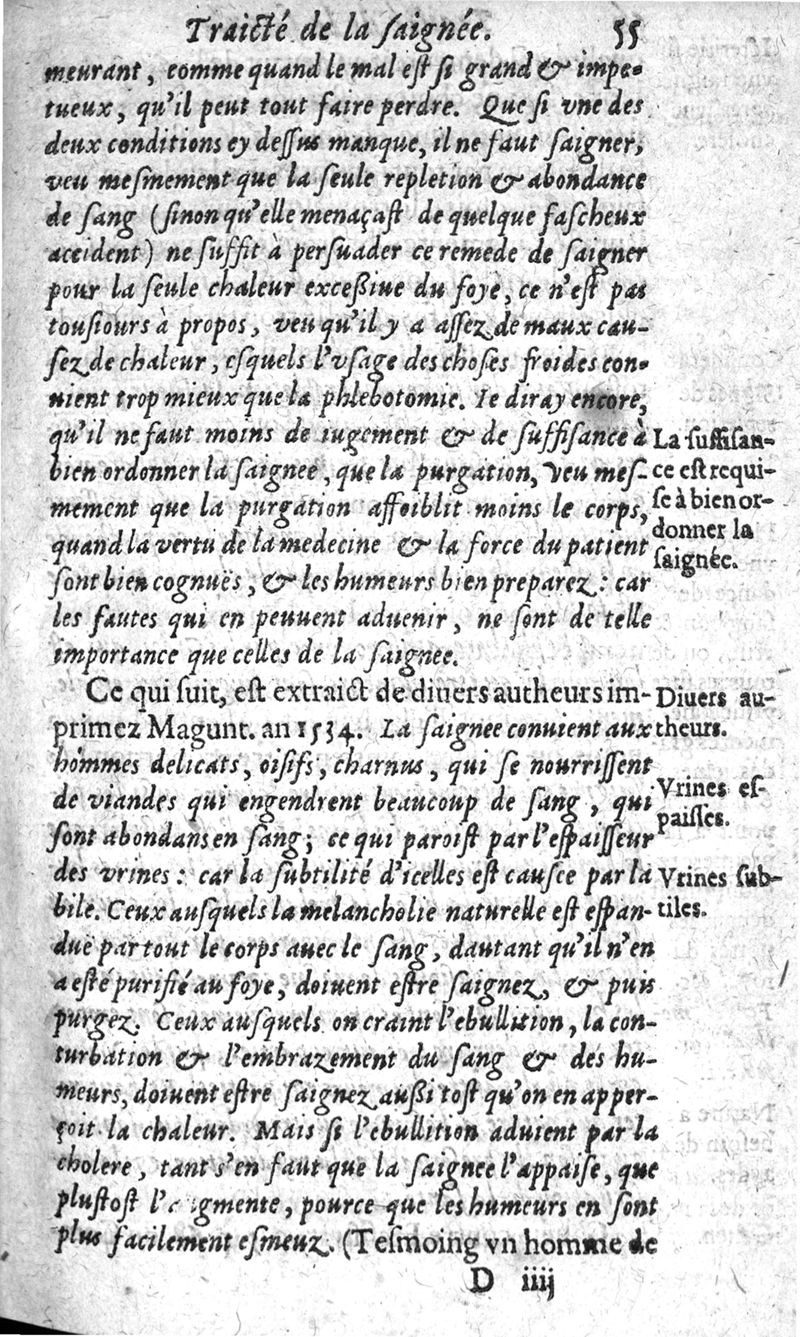 Traicté de la saignée. 55
meurant, comme quand le mal est si grand & impe-
tueux, qu'il peut tout faire perdre. Que si vne des
deux conditions cy dessus manque, il ne faut saigner,
veu mesmement que la seule repletion & abondance
de sang (sinon qu'elle menaçast de quelque fascheux
accident) ne suffit à persuader ce remede de saigner
pour la seule chaleur excessiue du foye, ce n'est pas
tousiours à propos, veu qu'il y a assez de maux cau-
sez de chaleur, esquels l'vsage des choses froides con-
uient trop mieux que la phlebotomie. Ie diray encore,
qu'il ne faut moins de iugement & de suffisance à
bien ordonner la saignee, que la purgation, veu mes-
mement que la purgation affoiblit moins le corps,
quand la vertu de la medecine & la force du patient
sont bien cognuës, & les humeurs bien preparez: car
les fautes qui en peuuent aduenir, ne sont de telle
importance que celles de la saignee.
La suffisan-
ce est requi-
se à bien or-
donner la
saignée.
Ce qui suit, est extraict de diuers autheurs im-
primez Magunt. an 1534. La saignee conuient aux
hommes delicats, oisifs, charnus, qui se nourrissent
de viandes qui engendrent beaucoup de sang, qui
sont abondans en sang; ce qui paroist par l'espaisseur
des vrines: car la subtilité d'icelles est causee par la
bile. Ceux ausquels la melancholie naturelle est espan-
duë par tout le corps auec le sang, dautant qu'il n'en
a esté purifié au foye, doiuent estre saignez, & puis
purgez. Ceux ausquels on craint l'ebullition, la con-
turbation & l'embrazement du sang & des hu-
meurs, doiuent estre saignez aussi tost qu'on en apper-
çoit la chaleur. Mais si l'ebullition aduient par la
cholere, tant s'en faut que la saignee l'appaise, que
plustost l'augmente, pource que les humeurs en sont
plus facilement esmeuz. (Tesmoing vn homme de
Diuers au-
theurs.
Vrines es-
paisses.
Vrines sub-
tiles.
D iiij